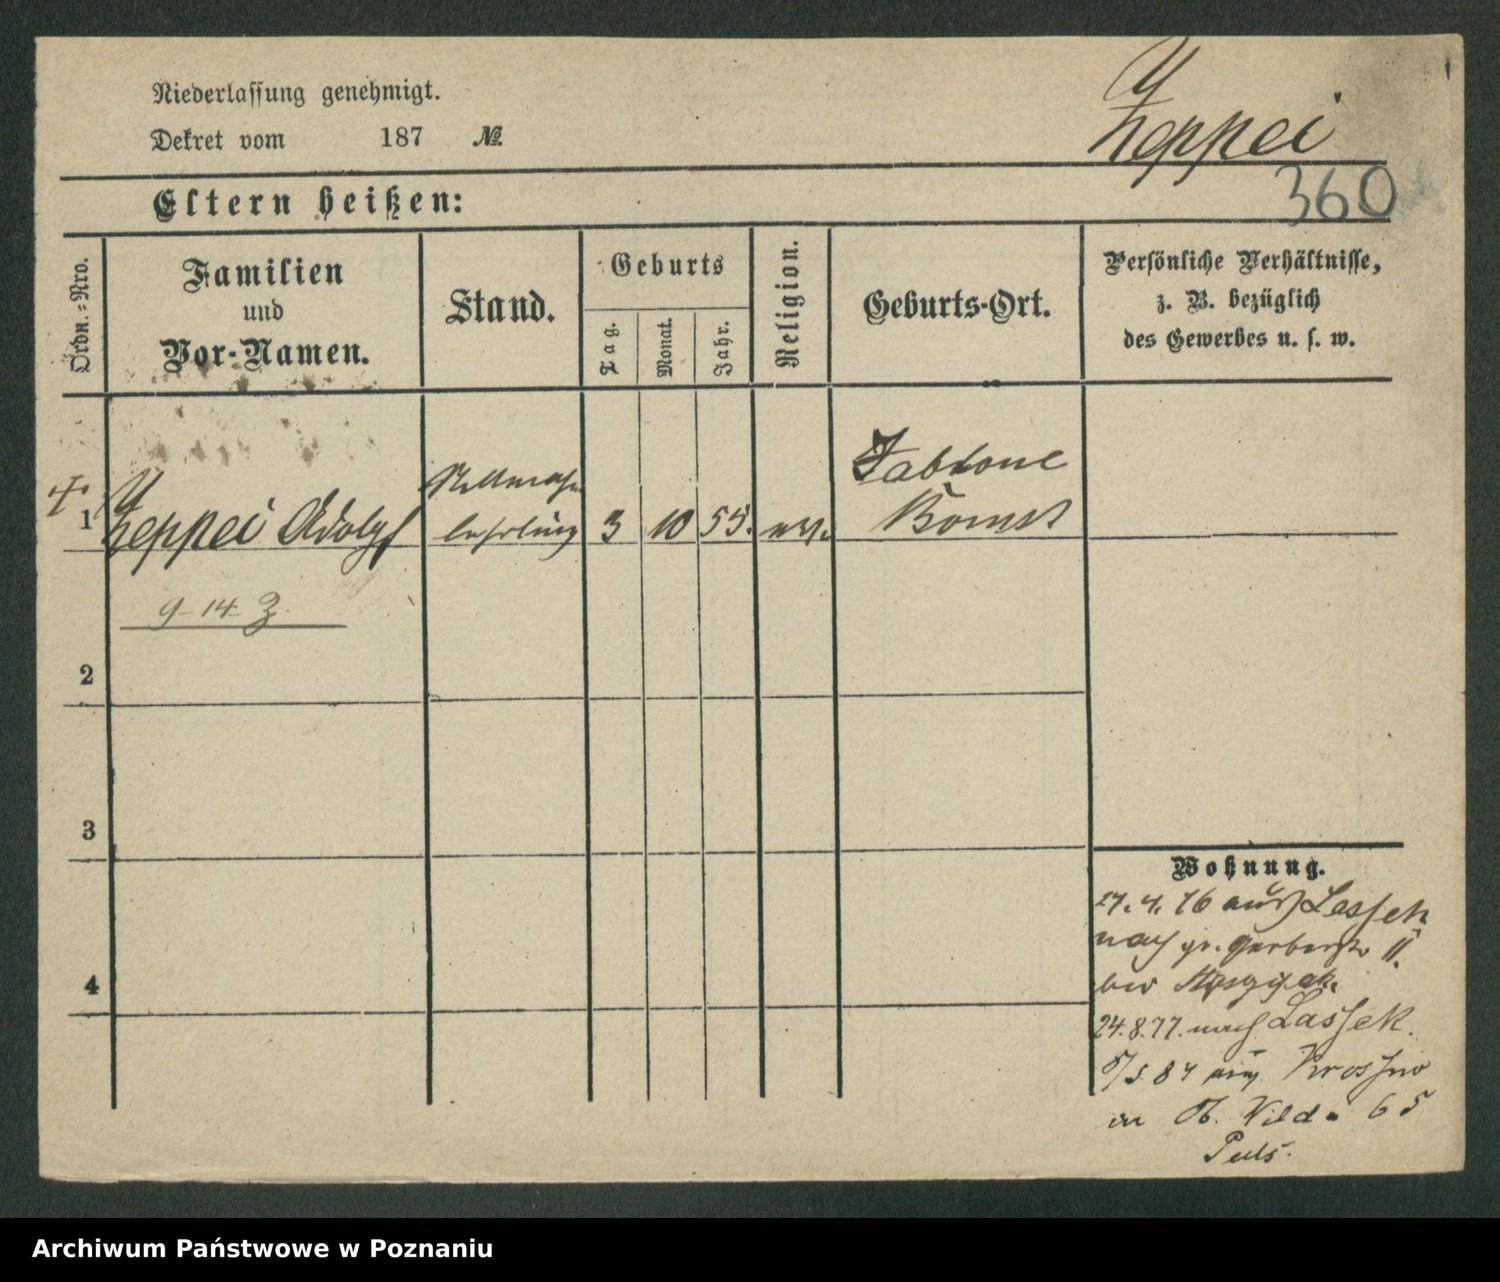 Niederlaſſung genehmigt.
Dekret vom 187 №
Zeppei
360
Eltern heißen:
Ordn.-Nro.
Familien
und
Vor-Namen.
Stand.
Geburts
Tag.
Monat.
Jahr.
Religion.
Geburts-Ort.
Perſönliche Verhältniſſe,
z. B. bezüglich
des Gewerbes u. ſ. w.
1
Zeppei Adolph
lehrling
3 10 55.
ev.
Jablone
Bomst
9 14 3
2
3
4
Wohnung.
27. 4. 76 aus Lassek
nach gr. Gerberstr 11.
bei
24. 8. 77. nach Lassek.
84 aus Krossno
in O. Wilda 65
Puls.
Archiwum Państwowe w Poznaniu